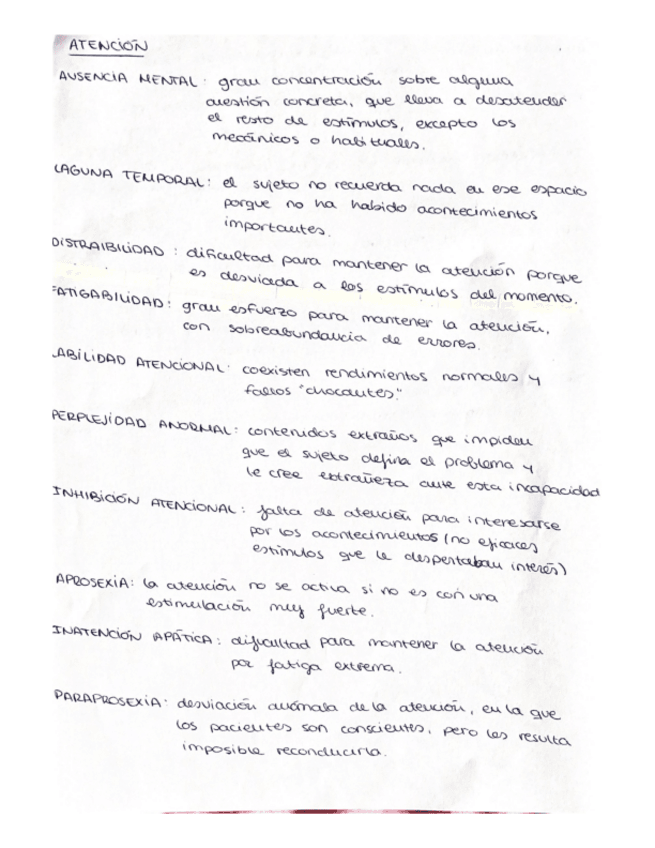 ATENCIÓN
AUSENCIA MENTAL: gran concentración sobre alguna
cuestión concreta, que lleva a desatender
el resto de estímulos, excepto los
mecánicos o habituales.
LAGUNA TEMPORAL: el sujeto no recuerda nada en ese espacio
porque no ha habido acontecimientos
importantes.
DISTRAIBILIDAD: dificultad para mantener la atención porque
es desviada a los estímulos del momento.
FATIGABILIDAD: gran esfuerzo para mantener la atención,
con sobreabundancia de errores.
LABILIDAD ATENCIONAL: coexisten rendimientos normales y
fallos "chocantes".
PERPLEJIDAD ANORMAL: contenidos extraños que impiden
que el sujeto defina el problema y
le cree extrañeza ante esta incapacidad
INHIBICIÓN ATENCIONAL: falta de atención para interesarse
por los acontecimientos (no eficaces
estímulos que le despertaban interés)
APROSEXIA: la atención no se activa si no es con una
estimulación muy fuerte.
INATENCIÓN APÁTICA: dificultad para mantener la atención
por fatiga extrema.
PARAPROSEXIA: desviación anómala de la atención, en la que
los pacientes son conscientes, pero les resulta
imposible reconducirla.